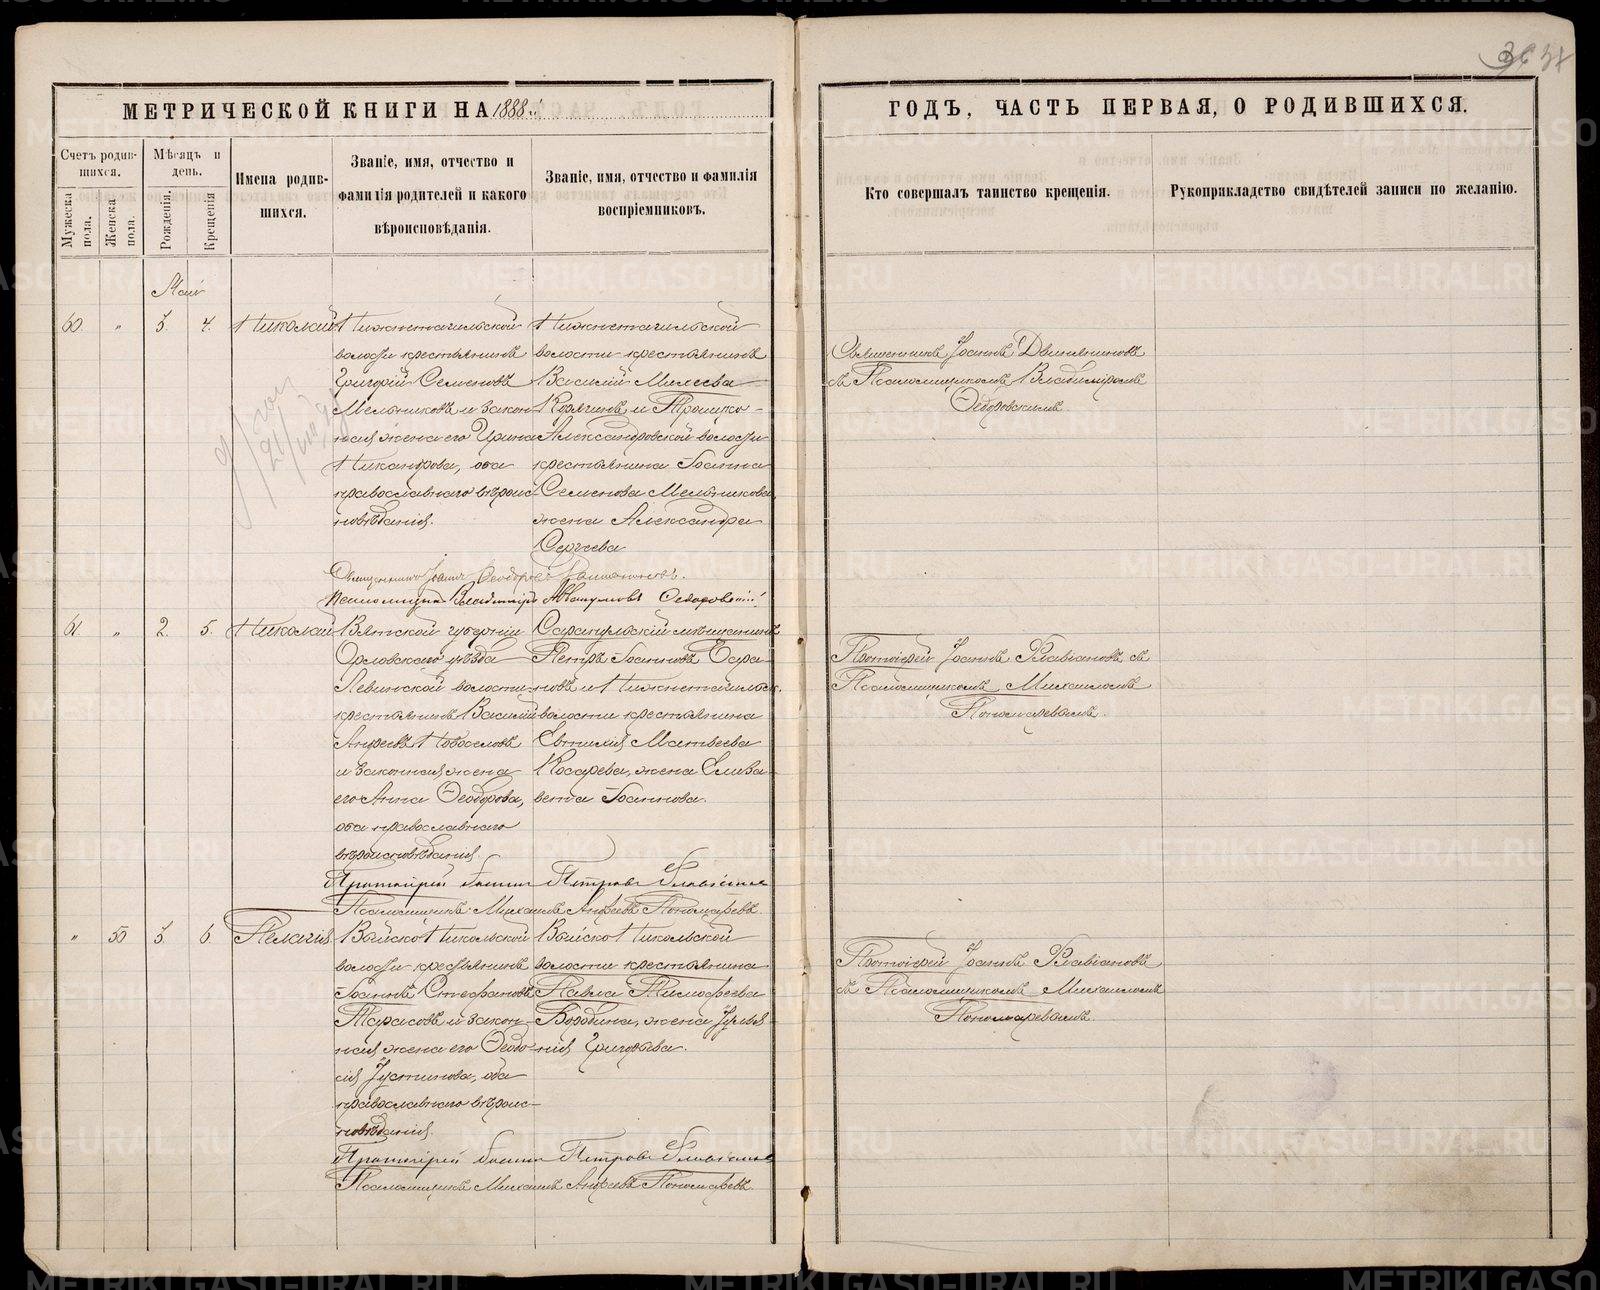 36 37
МЕТРИЧЕСКОЙ КНИГИ НА 1888й
ГОДЪ, ЧАСТЬ ПЕРВАЯ, О РОДИВШИХСЯ.
Счетъ родив-
шихся.
Мужеска
пола.
Женска
пола.
Мѣсяцъ и
день.
Рожденія.
Крещенія
Имена родив-
шихся.
Званіе, имя, отчество и
фамилія родителей и какого
вѣроисповѣданія.
Званіе, имя, отчество и фамилія
воспріемниковъ.
Кто совершалъ таинство крещенія.
Рукоприкладство свидѣтелей записи по желанію.
Май
60. „ 3. 4. Николай
Нижнетагильской
волости крестьянинъ
Григорій Семеновъ
Мельниковъ и закон-
ная жена его Ирина
Никандрова, оба
православнаго вѣроис-
повѣданія.
Нижнетагильской
волости крестьянинъ
Василій
и Троицко-
Александровской волости
крестьянина Іоанна
Семенова Мельникова
жена Александра
Сергѣева
Священникъ Іоаннъ
съ Псаломщикомъ Владиміромъ
Ѳедоровскимъ.
Священникъ Іоаннъ Ѳеодоровъ
Псаломщикъ Владиміръ Аввакумовъ Ѳедоровскій
61 „ 2. 5. Николай
Вятской губерніи
Орловскаго уѣзда
Левинской волости
крестьянинъ Василій
Андреевъ Новоселовъ
и законная жена
его Анна Ѳеодорова,
оба православнаго
вѣроисповѣданія.
Сарапульскій мѣщанинъ
Петръ Іоанновъ
и Нижнетагильск.
волости крестьянина
Евтихія Матвѣева
Косарева, жена Елиза-
вета Іоаннова.
Протоіерей Іоаннъ Флавіановъ съ
Псаломщикомъ Михаиломъ
Пономаревымъ.
Протоіерей Іоаннъ Петровъ Флавіановъ
Псаломщикъ Михаилъ Андреевъ Пономаревъ.
„ 50 3. 6. Пелагія
Войско Никольской
волости крестьянинъ
Іоаннъ Стефановъ
Тарасовъ и закон-
ная жена его Ѳеодо-
сія Іустинова, оба
православнаго вѣроис-
повѣданія.
Войско Никольской
волости крестьянина
Павла Тимофеева
Бородина, жена Іуліа-
нія Григорьева.
Протоіерей Іоаннъ Флавіановъ
съ Псаломщикомъ Михаиломъ
Пономаревымъ.
Протоіерей Іоаннъ Петровъ Флавіановъ
Псаломщикъ Михаилъ Андреевъ Пономаревъ.
METRIKI.GASO-URAL.RU